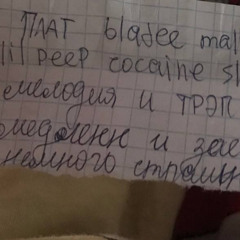 ПЛАТ bladee mal
lil peep cocaine sl
мелодия и трэп
омедленн и заем
немного страшн